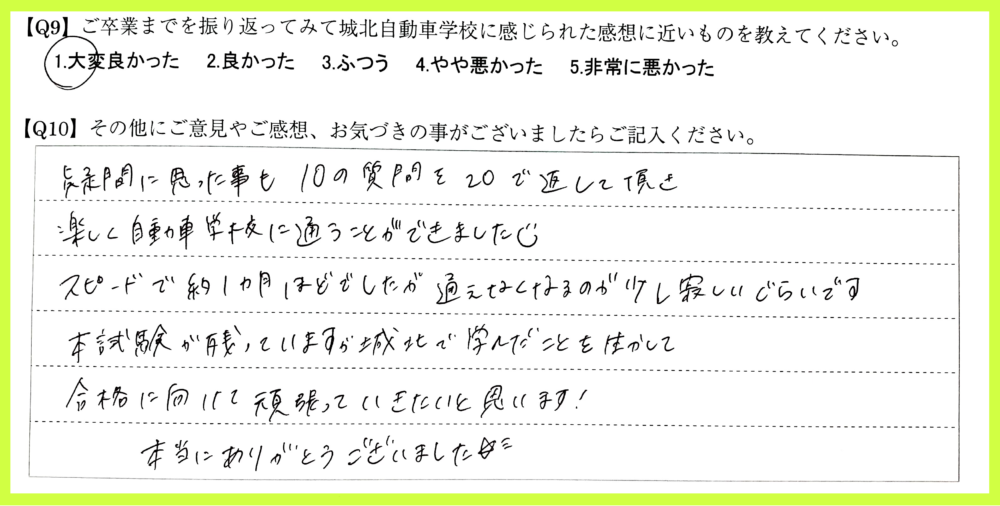 【Q9】ご卒業までを振り返ってみて城北自動車学校に感じられた感想に近いものを教えてください。
1.大変良かった 2.良かった 3.ふつう 4.やや悪かった 5.非常に悪かった
【Q10】その他にご意見やご感想、お気づきの事がございましたらご記入ください。
疑問に思った事も 10の質問を20で返して頂き
楽しく自動車学校に通うことができました
スピードで約1カ月ほどでしたが 通えなくなるのが少し寂しいぐらいです
本試験が残っていますが城北で学んだことを生かして
合格に向けて頑張っていきたいと思います!
本当にありがとうございました☆ミ